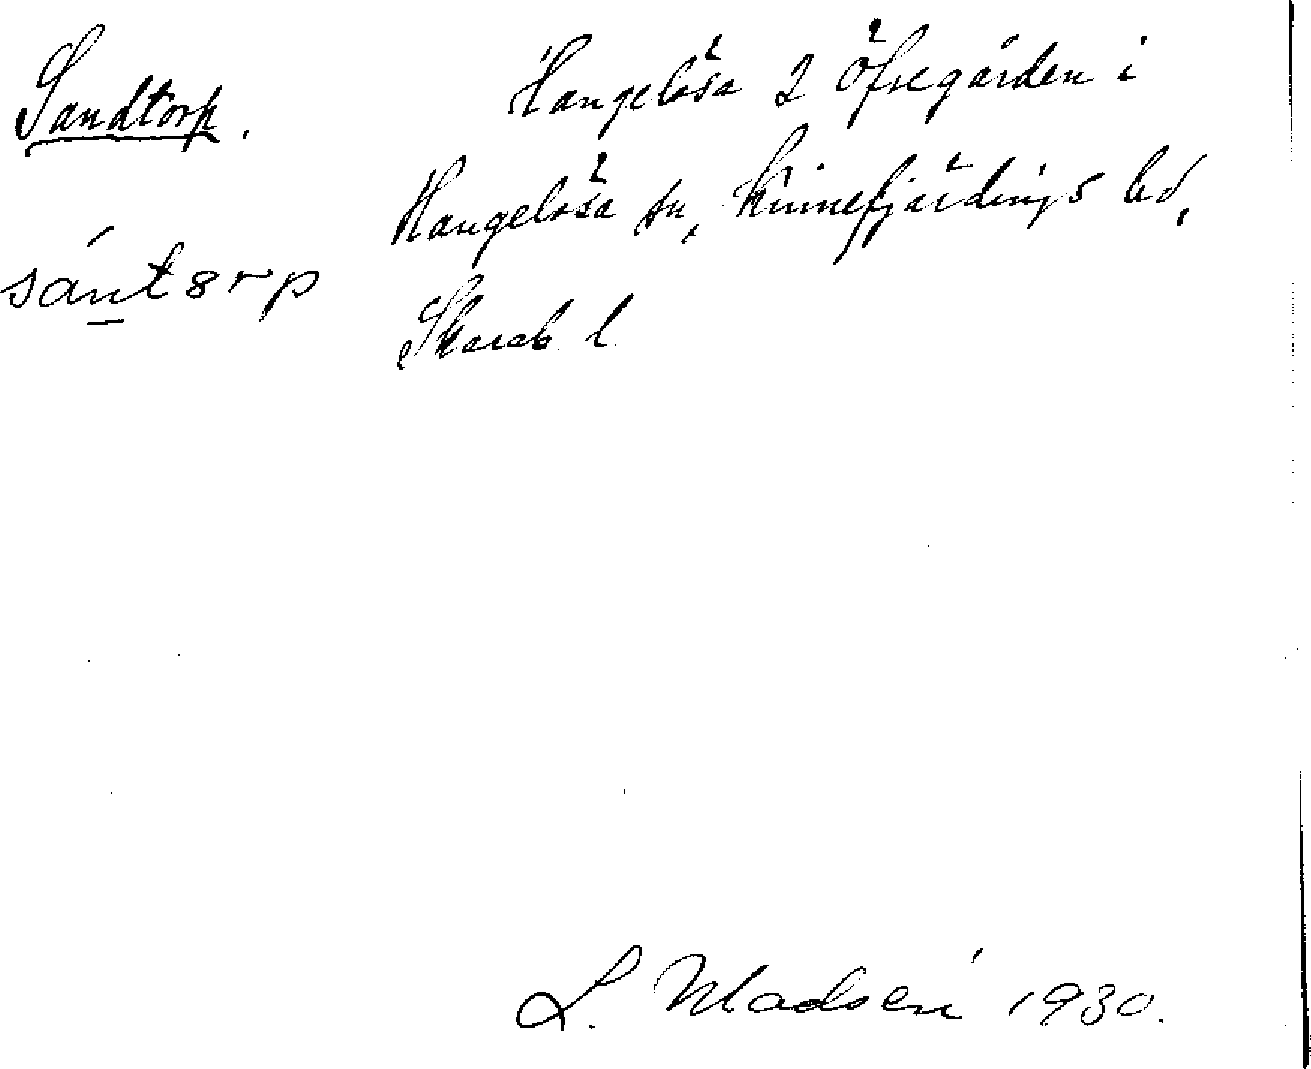 Sandtorp.
Hangelösa 2 Öfregården i
Hangelösa sn, Kinnefjärdings hd,
Skarab l
sántorp
L. Madsén 1930.